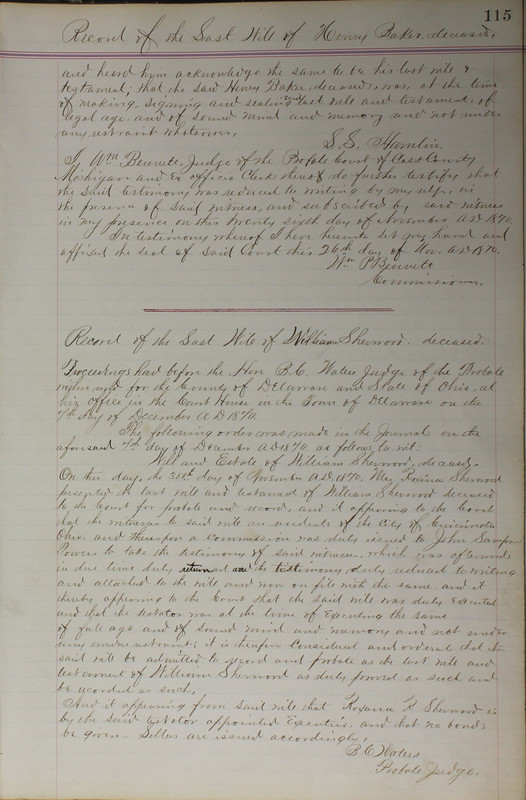 115
Record of the Last Will of Henry Baker. deceased,
and heard him acknowledge the same to be his last will &
testament; that, the said Henry Baker, deceased, was, at the time
of making signing and sealing said last will and testament, of
legal age and of sound mind and memory and not under
any restraint whatsoever.
S. S. Hamlin
I, Wm Bennett, Judge of the Probate Court of Cass County
Michigan and Ex officio Clerk thereof do further testify that
the said testimony was reduced to writing by my self, in
the presence of said witness, and subscribed by said witness
in my presence on this twenty sixth day of November A.D. 1870.
In testimony whereof I have hereunto set my hand and
affixed the seal of said Court this 26th day of Nov. A.D 1870.
Wm P Bennett
Commissioner.
Record of the Last Will of William Sherwood. deceased.
Proceedings had before the Hon B.C. Waters Judge of the Probate
within and for the County of Delaware and State of Ohio, at
his Office in the Court House in the Town of Delaware on the
7th day of December A.D 1870.
The following order was made in the Journal on the
aforesaid 7th day of December A.D 1870 as follows to wit:
Will and Estate of William Sherwood, deceased.
On this day, the day of November A.D. 1870. Sherwood
presented the last will and testament of William Sherwood deceased
to the Court for probate and record, and it appearing to the Court
that the witnesses to said will are residents of the City of Cincinnati
Ohio. and thereupon a Commission was duly issued to John
to take the testimony of said witnesses, which was afterwards
in due time duly returned and the testimony duly reduced to writing
and attached to the will and now on file with the same and it
thereby appearing to the Court that the said will was duly Executed
and that the testator was at the time of Executing the same
of full age and of sound mind and memory and not under
any restraint; it is therefore Considered and ordered that the
said will be admitted to record and probate as the last will and
testament of William Sherwood as duly proved as such and
be recorded as such,
And it appearing from said will that Roxania R Sherwood is
by the said testator appointed Executrix, and that no bonds
be given - Letters are issued accordingly,
B. C. Waters
Probate Judge.